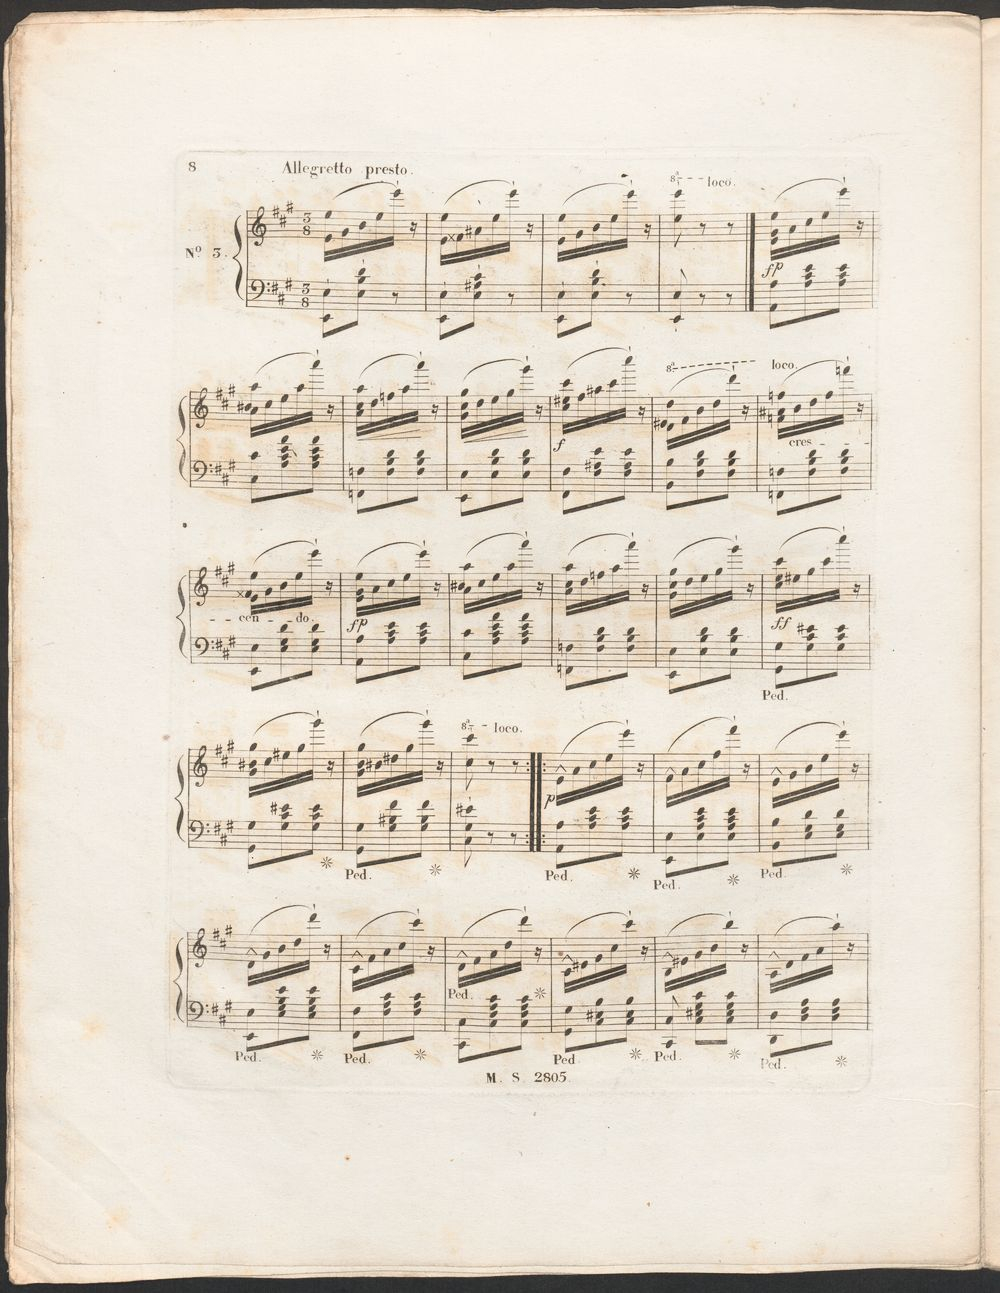 8 Allegretto presto.
8ª loco.
Nº 3.
3 8
fp
3 8
8ª loco.
f
cres
cen do.
fp
ff
Ped.
8ª loco.
p
Ped. Ped. Ped. Ped.
Ped.
Ped. Ped. Ped. Ped. Ped.
M. S. 2805.